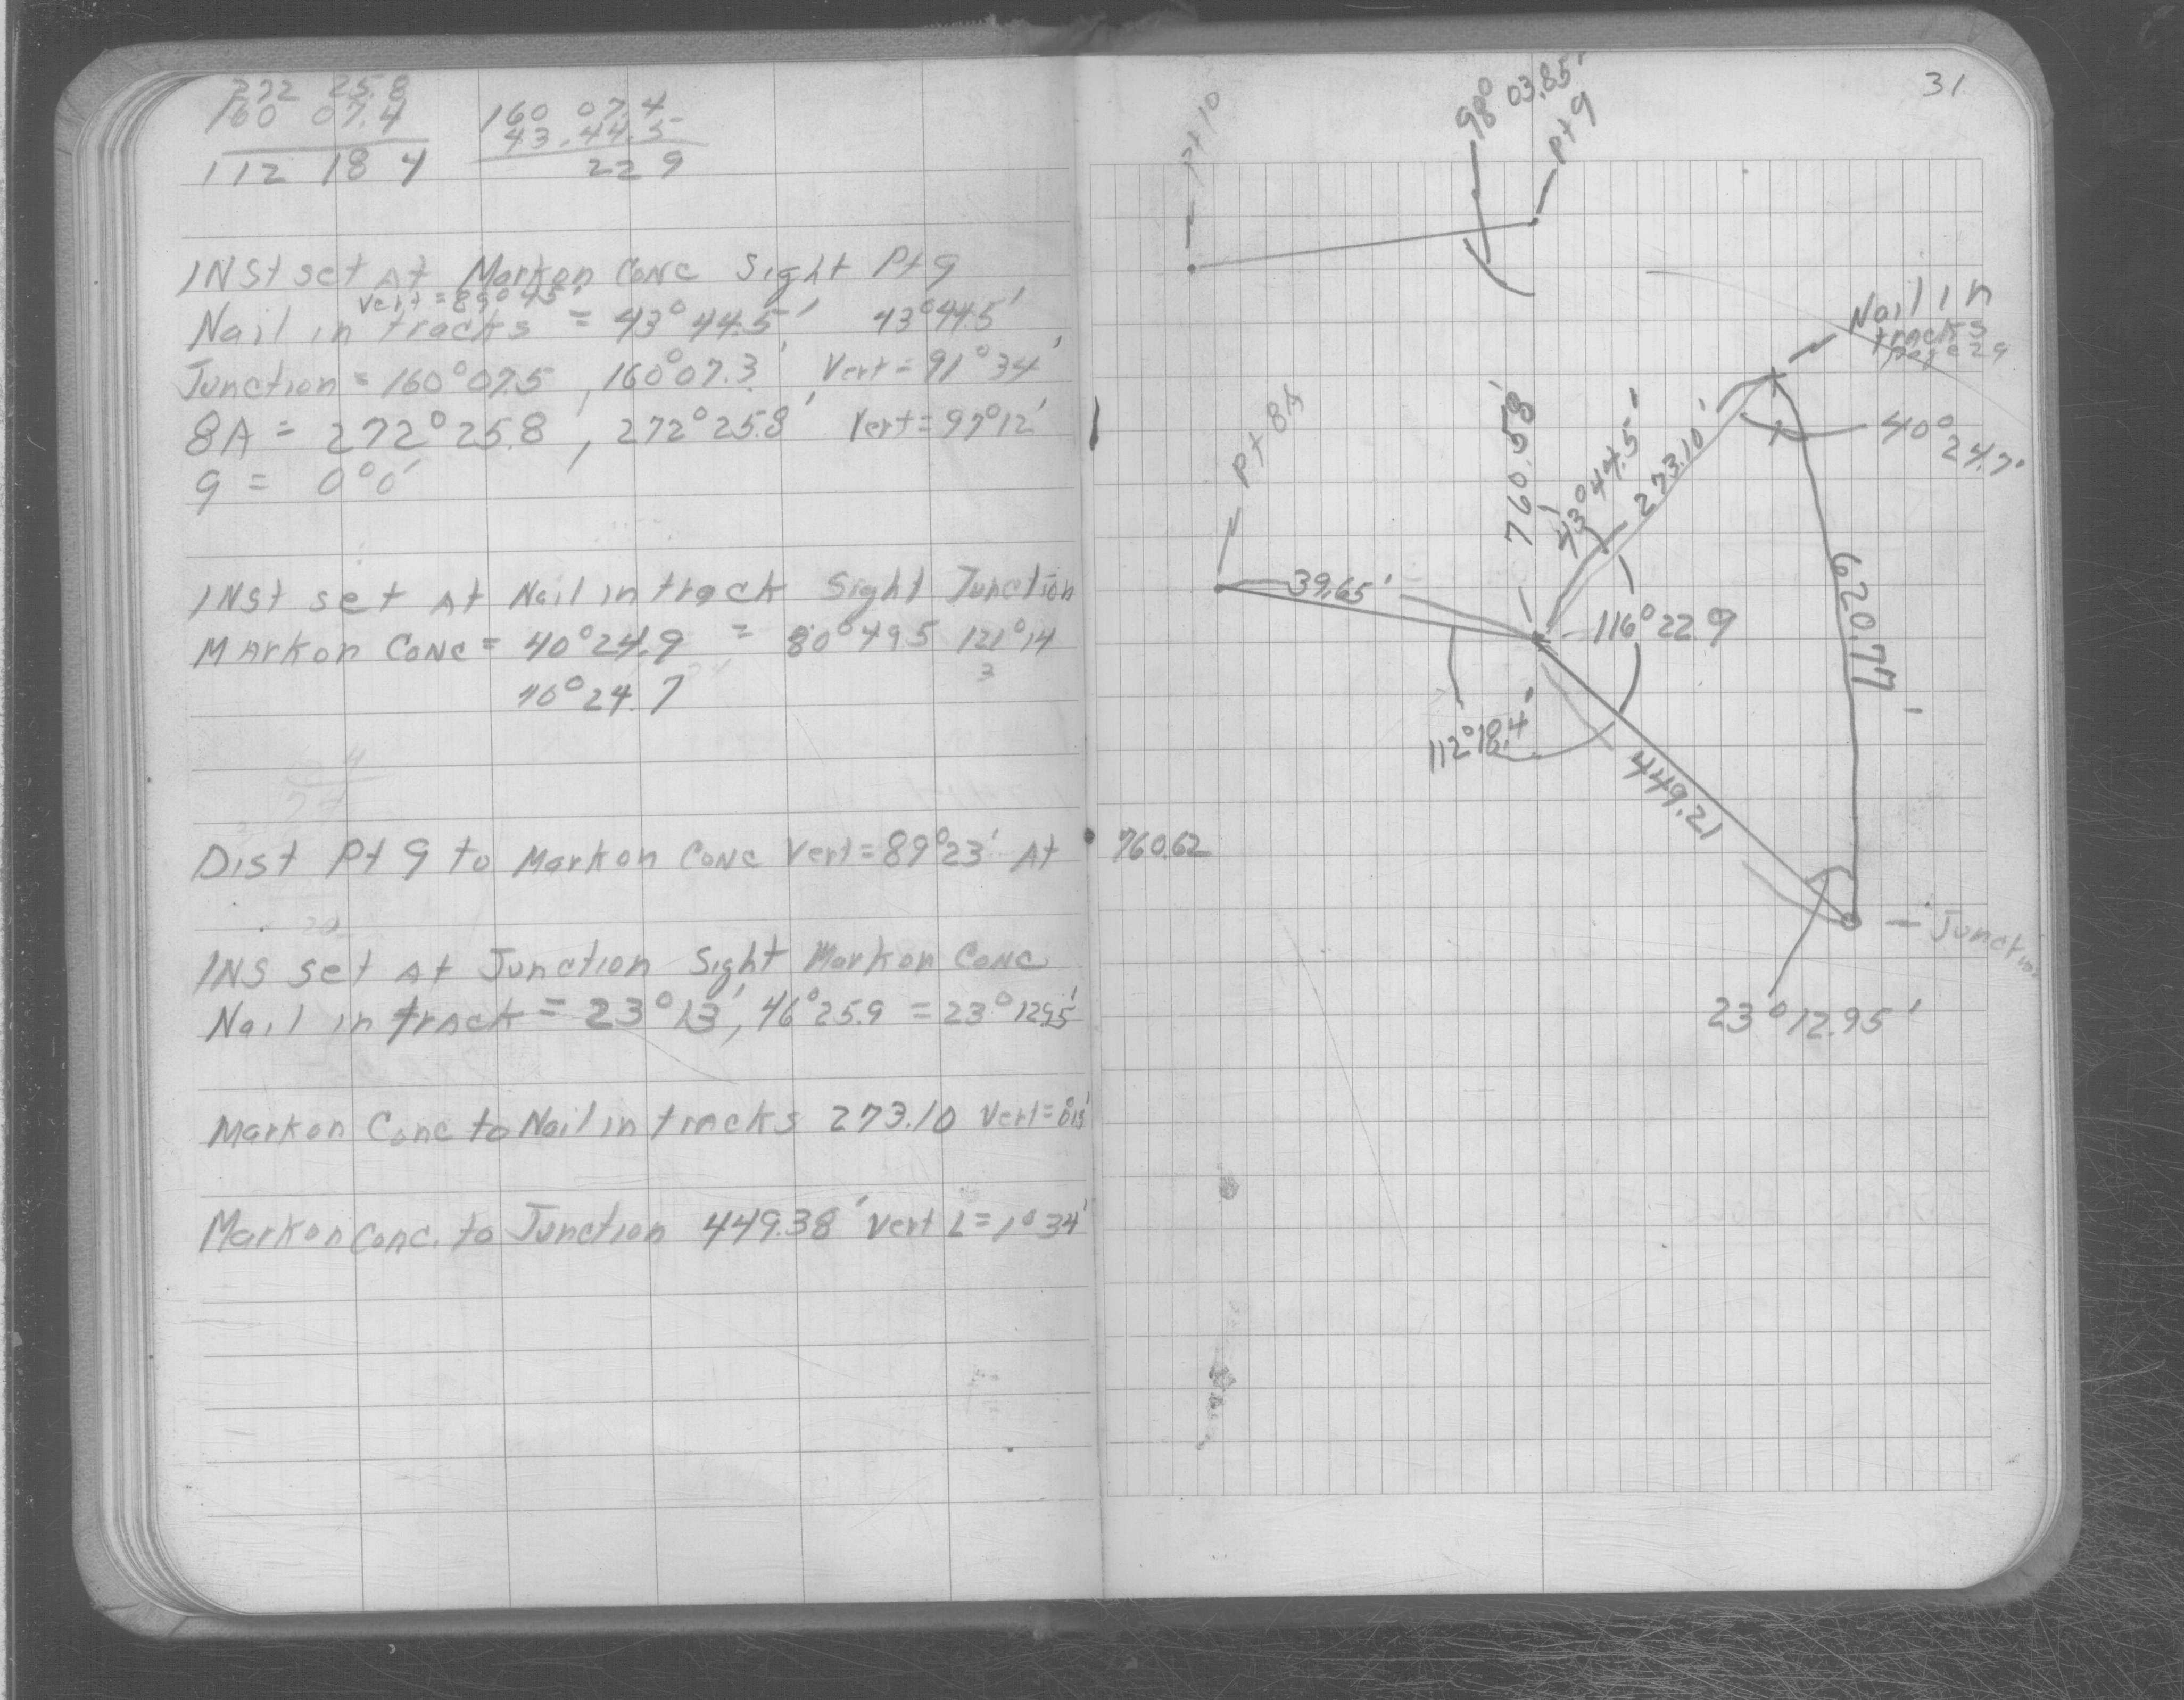 272 25.8
160 07.4
112 18 4
160 07.4
43.44.5
22 9
INSt set At Markon Conc Sight Pt 9
Vert = 89°45'
Nail in tracks = 43°44.5' 43°44.5'
Junction = 160°07.5, 160°07.3', Vert = 91°34'
8A = 272°25.8', 272°25.8' Vert = 97°12'
9 = 0°0'
INSt set At Nail in track Sight Junction
MArkon Conc = 40°24.9 = 80°49 5 121°14
3
40°24.7
Dist Pt 9 to Markon Conc Vert = 89°23' At 760.62
INS set At Junction Sight Markon Conc
Nail in track = 23°13', 46°25.9 = 23°12.95'
Markon Conc to Nail in tracks 273.10
Markon Conc. to Junction 449.38' Vert L = 1°34'
31
Pt 10
98° 03.85'
Pt 9
Nail in
tracks
page 29
40°
24.7'
Pt 8A
760.58'
43°44.5"
273.10'
39.65'
116°22.9
620.77'
112°18.4"
449.21
Junction
23°12.95'